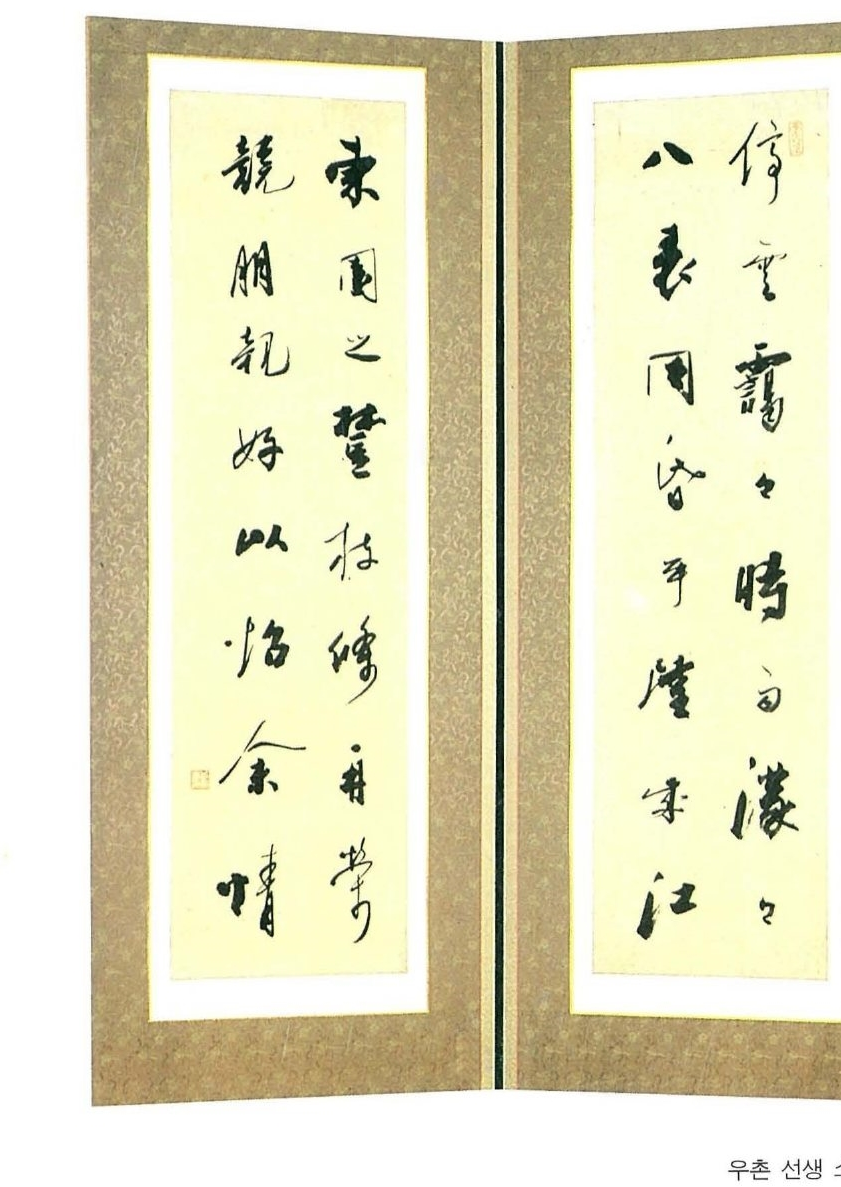 停雲靄々時雨濛々
八表同昏平陸成江
東園之樹枝條再榮
競朋親好以怡余情
우촌 선생